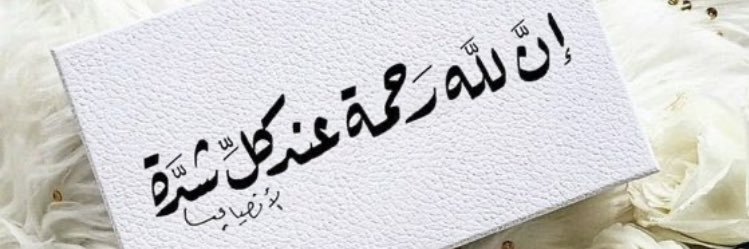 إنَّ للَّه رَحمة عند كلِّ شدَّة